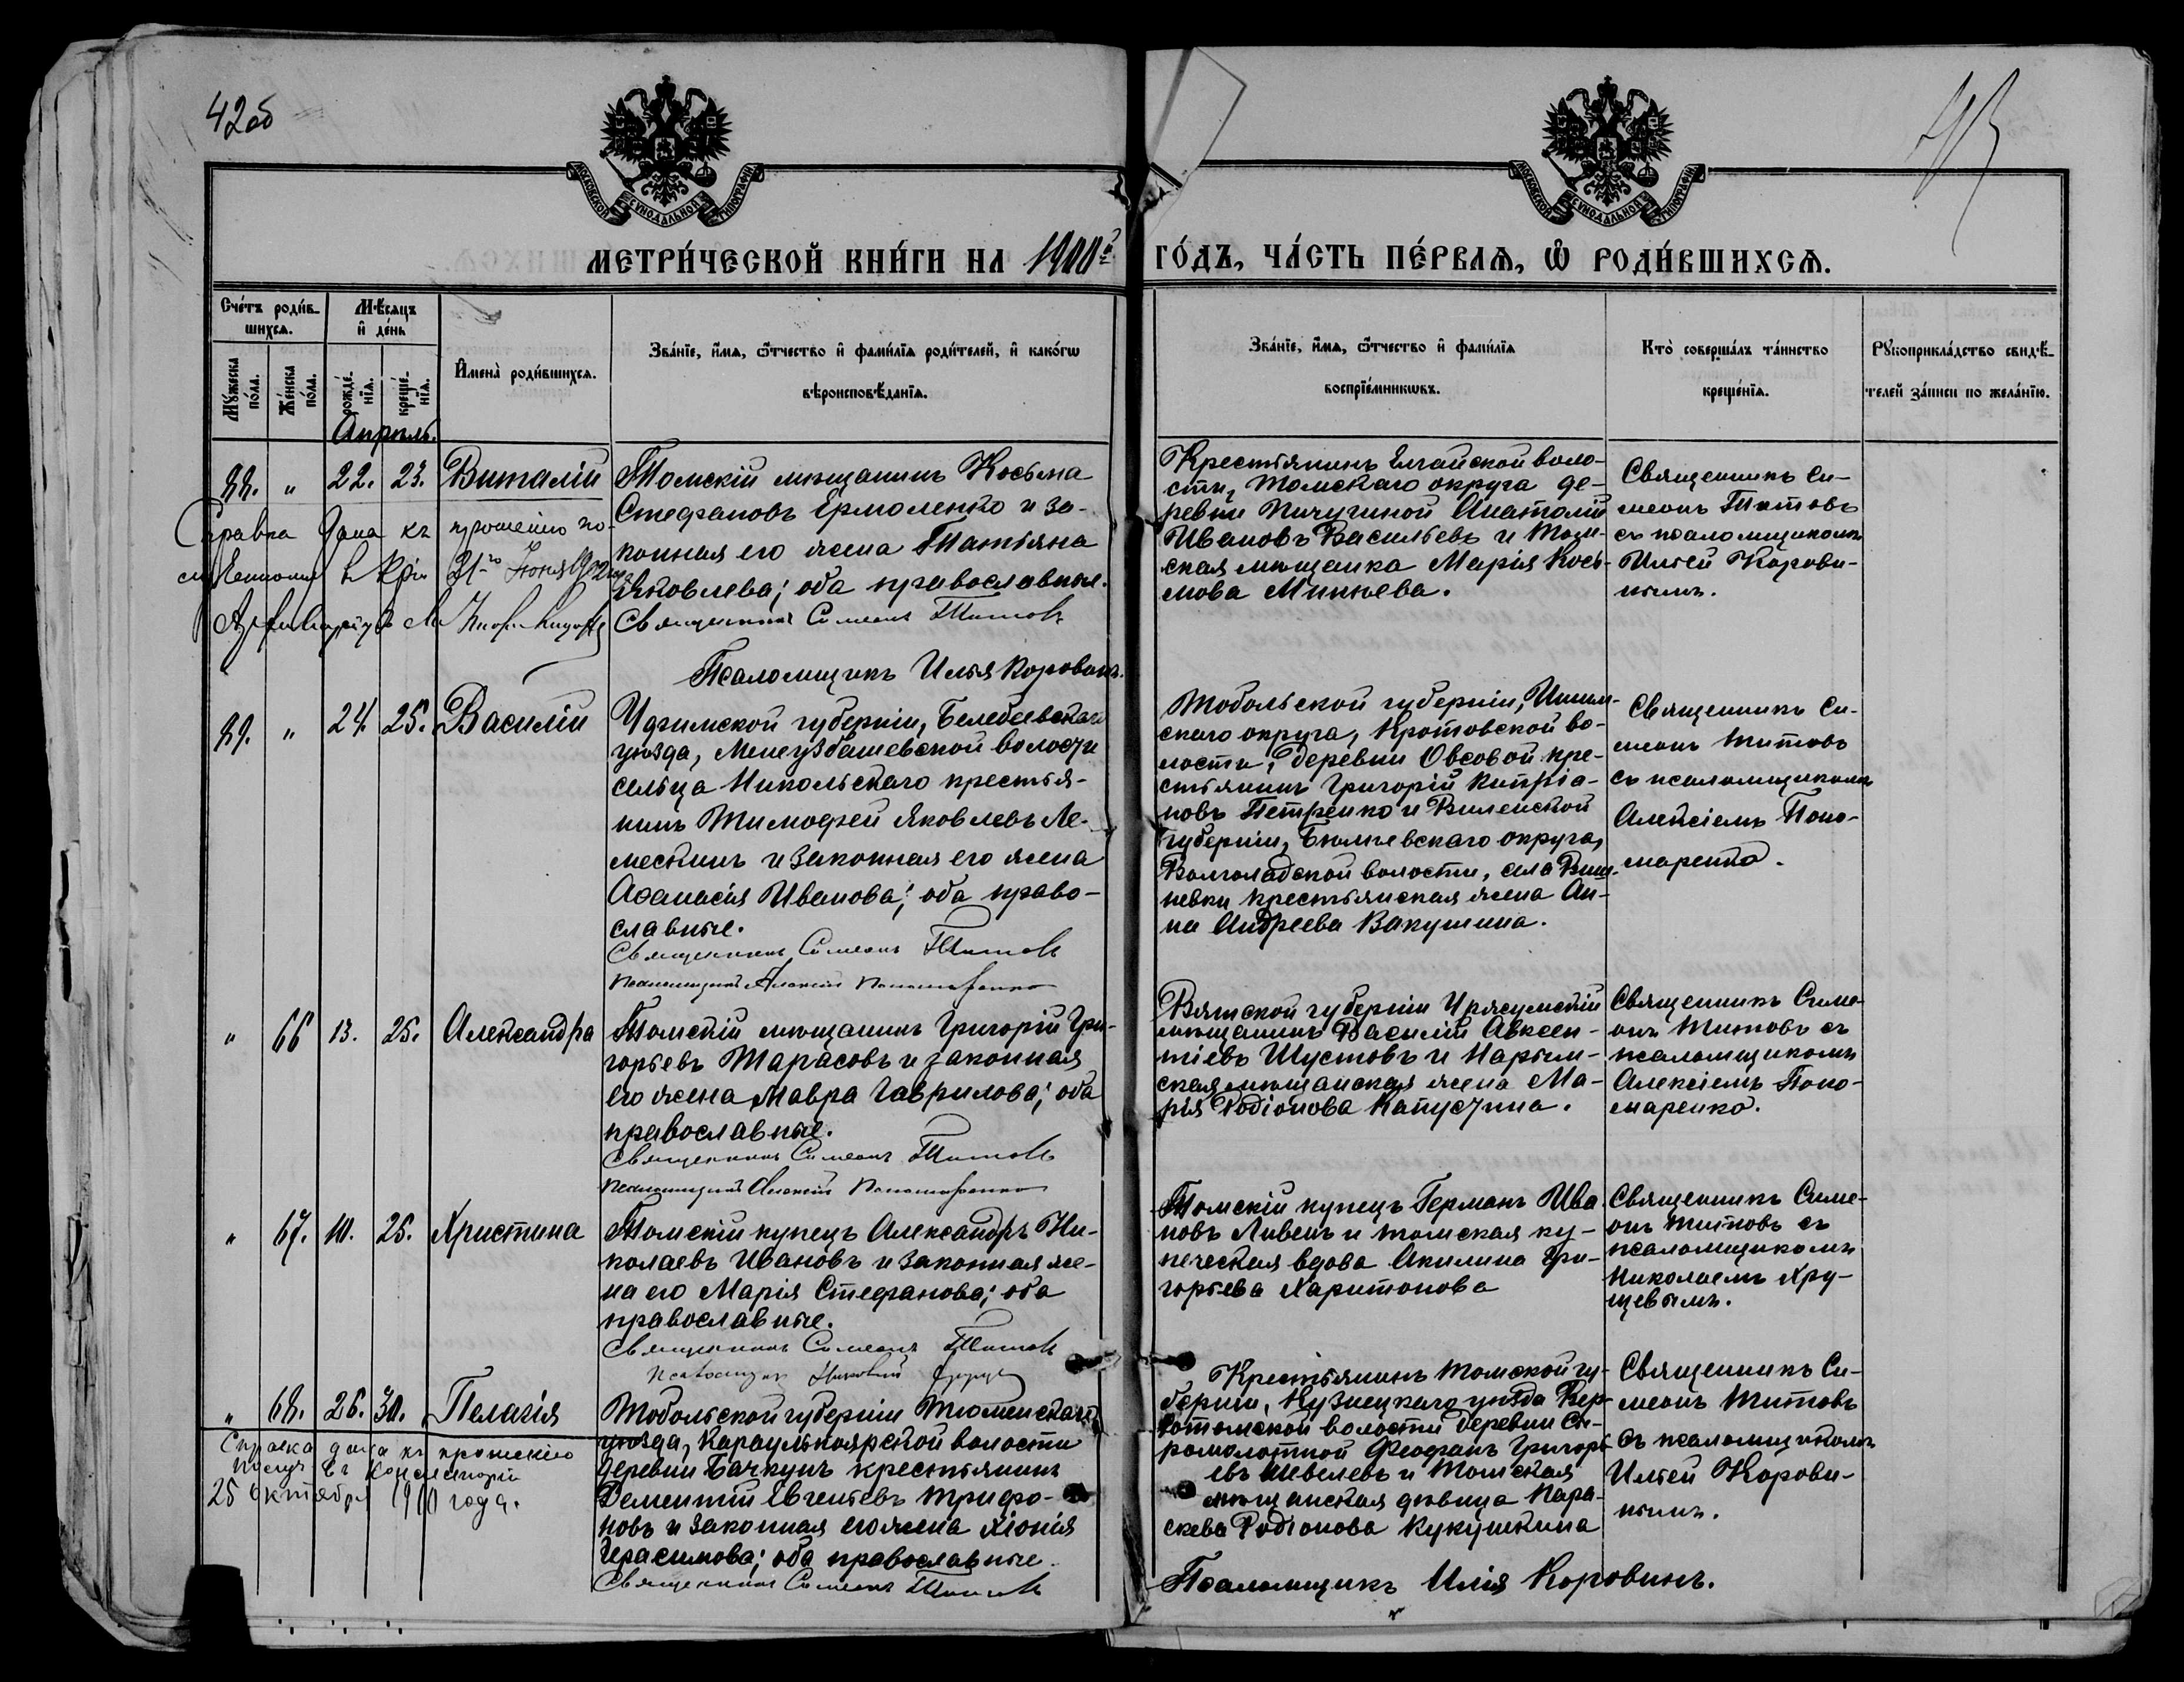 42об
43
МОСКОВСКОЙ СѴНОДАЛЬНОЙ ТИПОГРАФІИ
МОСКОВСКОЙ СѴНОДАЛЬНОЙ ТИПОГРАФІИ
МЕТРИ́ЧЕСКОЙ КНИ́ГИ НА 1900й ГО́ДЪ, ЧА́СТЬ ПЕ́РВАѦ, Ѡ҆ РОДИ́ВШИХСѦ.
Сче́тъ роди́в-
шихсѧ.
Мѣ́сѧцъ
и҆ де́нь
Мꙋ́жеска
по́ла.
Же́нска
по́ла.
рожде́-
нїѧ.
креще́-
нїѧ.
И҆мена̀ роди́вшихсѧ.
Зва́нїе, и҆́мѧ, ѻ҆́тчество и҆ фамѝлїѧ роди́телей, и҆ како́гѡ
вѣроисповѣ́данїѧ.
Зва́нїе, и҆́мѧ, ѻ҆́тчество и҆ фами́лїѧ
воспрїе́мникѡвъ.
Кто̀ соверша́лъ та́инство
креще́нїѧ.
Рꙋкоприкла́дство свидѣ́-
телей за́писи по жела́нїю.
Апрѣль.
88. " 22. 23. Виталій
Томскій мѣщанинъ Косьма
Стефановъ Ермоленко и за-
конная его жена Татьяна
Яковлева; оба православные.
Священникъ Симеонъ Титовъ
Псаломщикъ Илья Коровинъ.
Справка дана къ прошенію по-
21го Іюня 1902
Крестьянинъ Елгайской воло-
сти, Томскаго округа де-
ревни Пичугиной Анатолій
Ивановъ Васильевъ и Том-
ская мѣщанка Марія Кось-
мова Минѣева.
Священникъ Си-
меонъ Титовъ
съ псаломщикомъ
Ильей Корови-
нымъ.
89. " 24. 25. Василій
Уфимской губерніи, Белебеевскаго
уѣзда, Менеузбашевской волости
сельца Никольскаго крестья-
нинъ Тимофей Яковлевъ Ле-
мескинъ и законная его жена
Аѳанасія Иванова; оба право-
славные.
Священникъ Симеонъ Титовъ
Псаломщикъ Алексій Пономаренко
Тобольской губерніи, Ишим-
скаго округа, Кротовской во-
лости, деревни Овсовой кре-
стьянинъ Григорій Кипріа-
новъ Петренко и Виленской
губерніи,
волости, села Виш-
невки крестьянская жена Ан-
на Андреева Вакушина.
Священникъ Си-
меонъ Титовъ
съ псаломщикомъ
Алексіемъ Поно-
маренко.
" 66 13. 25. Александра
Томскій мѣщанинъ Григорій Гри-
горьевъ Тарасовъ и законная
его жена Мавра Гаврилова; оба
православные.
Священникъ Симеонъ Титовъ
Псаломщикъ Алексій Пономаренко
Вятской губерніи Уржумскій
мѣщанинъ Василій Авксен-
тіевъ Шустовъ и Нарым-
ская мѣщанская жена Ма-
рія Родіонова Капустина.
Священникъ Симе-
онъ Титовъ съ
псаломщикомъ
Алексіемъ Поно-
маренко.
" 67. 10. 25. Христина
Томскій купецъ Александръ Ни-
колаевъ Ивановъ и законная же-
на его Марія Стефанова; оба
православные.
Священникъ Симеонъ Титовъ
Томскій купецъ Германъ Ива-
новъ Ливенъ и томская ку-
печеская вдова Акилина Гри-
горьева Харитонова
Священникъ Симе-
онъ Титовъ съ
псаломщикомъ
Николаемъ Хру-
щевымъ.
" 68. 26. 30. Пелагія
Тобольской губерніи Тюменскаго
уѣзда, Караульноярской волости
деревни Бачкунъ крестьянинъ
Дементій Евгеньевъ Трифо-
новъ и законная его жена Хіонія
Герасимова; оба православные.
Священникъ Симеонъ Титовъ
Справка дана къ прошенію
послуч. въ Консисторіи
25 октября 1910 года.
Крестьянинъ Томской гу-
берніи, Кузнецкаго уѣзда Вер-
хотомской волости деревни Сы-
ромолотной Феофанъ Григорь-
евъ Шевелевъ и Томская
мѣщанская дѣвица Пара-
скева Родіонова Кукушкина
Псаломщикъ Илія Коровинъ.
Священникъ Си-
меонъ Титовъ
съ псаломщикомъ
Ильей Корови-
нымъ.